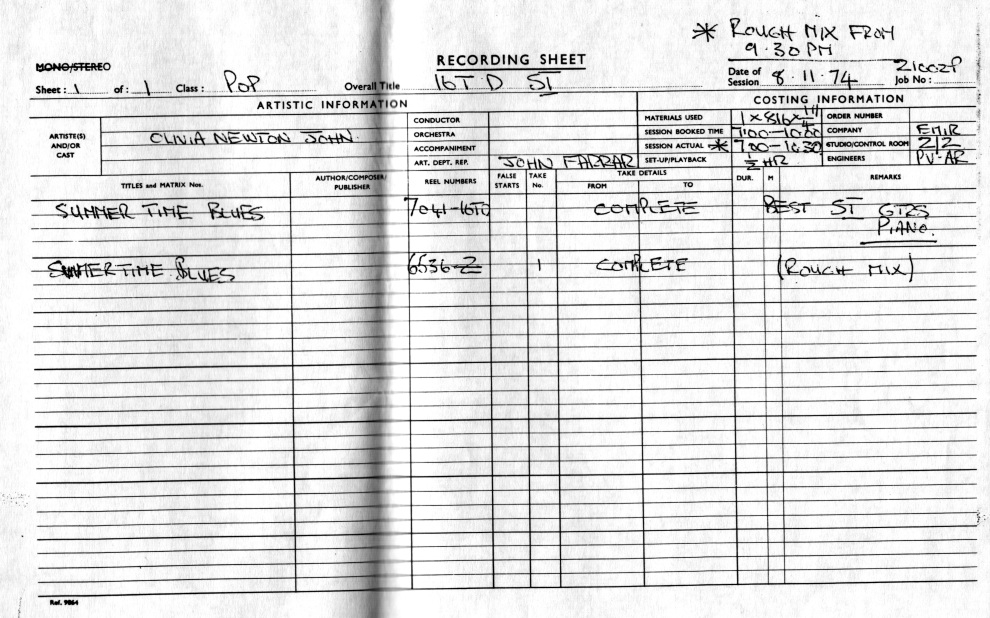 * ROUGH MIX FROM
9.30 PM
RECORDING SHEET
MONO/STEREO
Sheet: 1 of: 1 Class: POP Overall Title 16T D ST Date of Session 8.11.74 Job No: 21002P
ARTISTIC INFORMATION COSTING INFORMATION
ARTISTE(S) AND/OR CAST OLIVIA NEWTON JOHN
CONDUCTOR MATERIALS USED 1 x 816 x 1/4" ORDER NUMBER
ORCHESTRA SESSION BOOKED TIME 7.00-10.00 COMPANY EMIR
ACCOMPANIMENT SESSION ACTUAL * 7.00-10.30 STUDIO/CONTROL ROOM 2/2
ART. DEPT. REP. JOHN FARRAR SET-UP/PLAYBACK 1/2 HR ENGINEERS PV-AR
TITLES and MATRIX Nos. AUTHOR/COMPOSER/ PUBLISHER REEL NUMBERS FALSE STARTS TAKE No. TAKE DETAILS FROM TO DUR. M REMARKS
SUMMER TIME BLUES 7041-16TD COMPLETE BEST ST GTRS
PIANO.
SUMMERTIME BLUES 6536-Z 1 COMPLETE (ROUGH MIX)
Ref. 9864